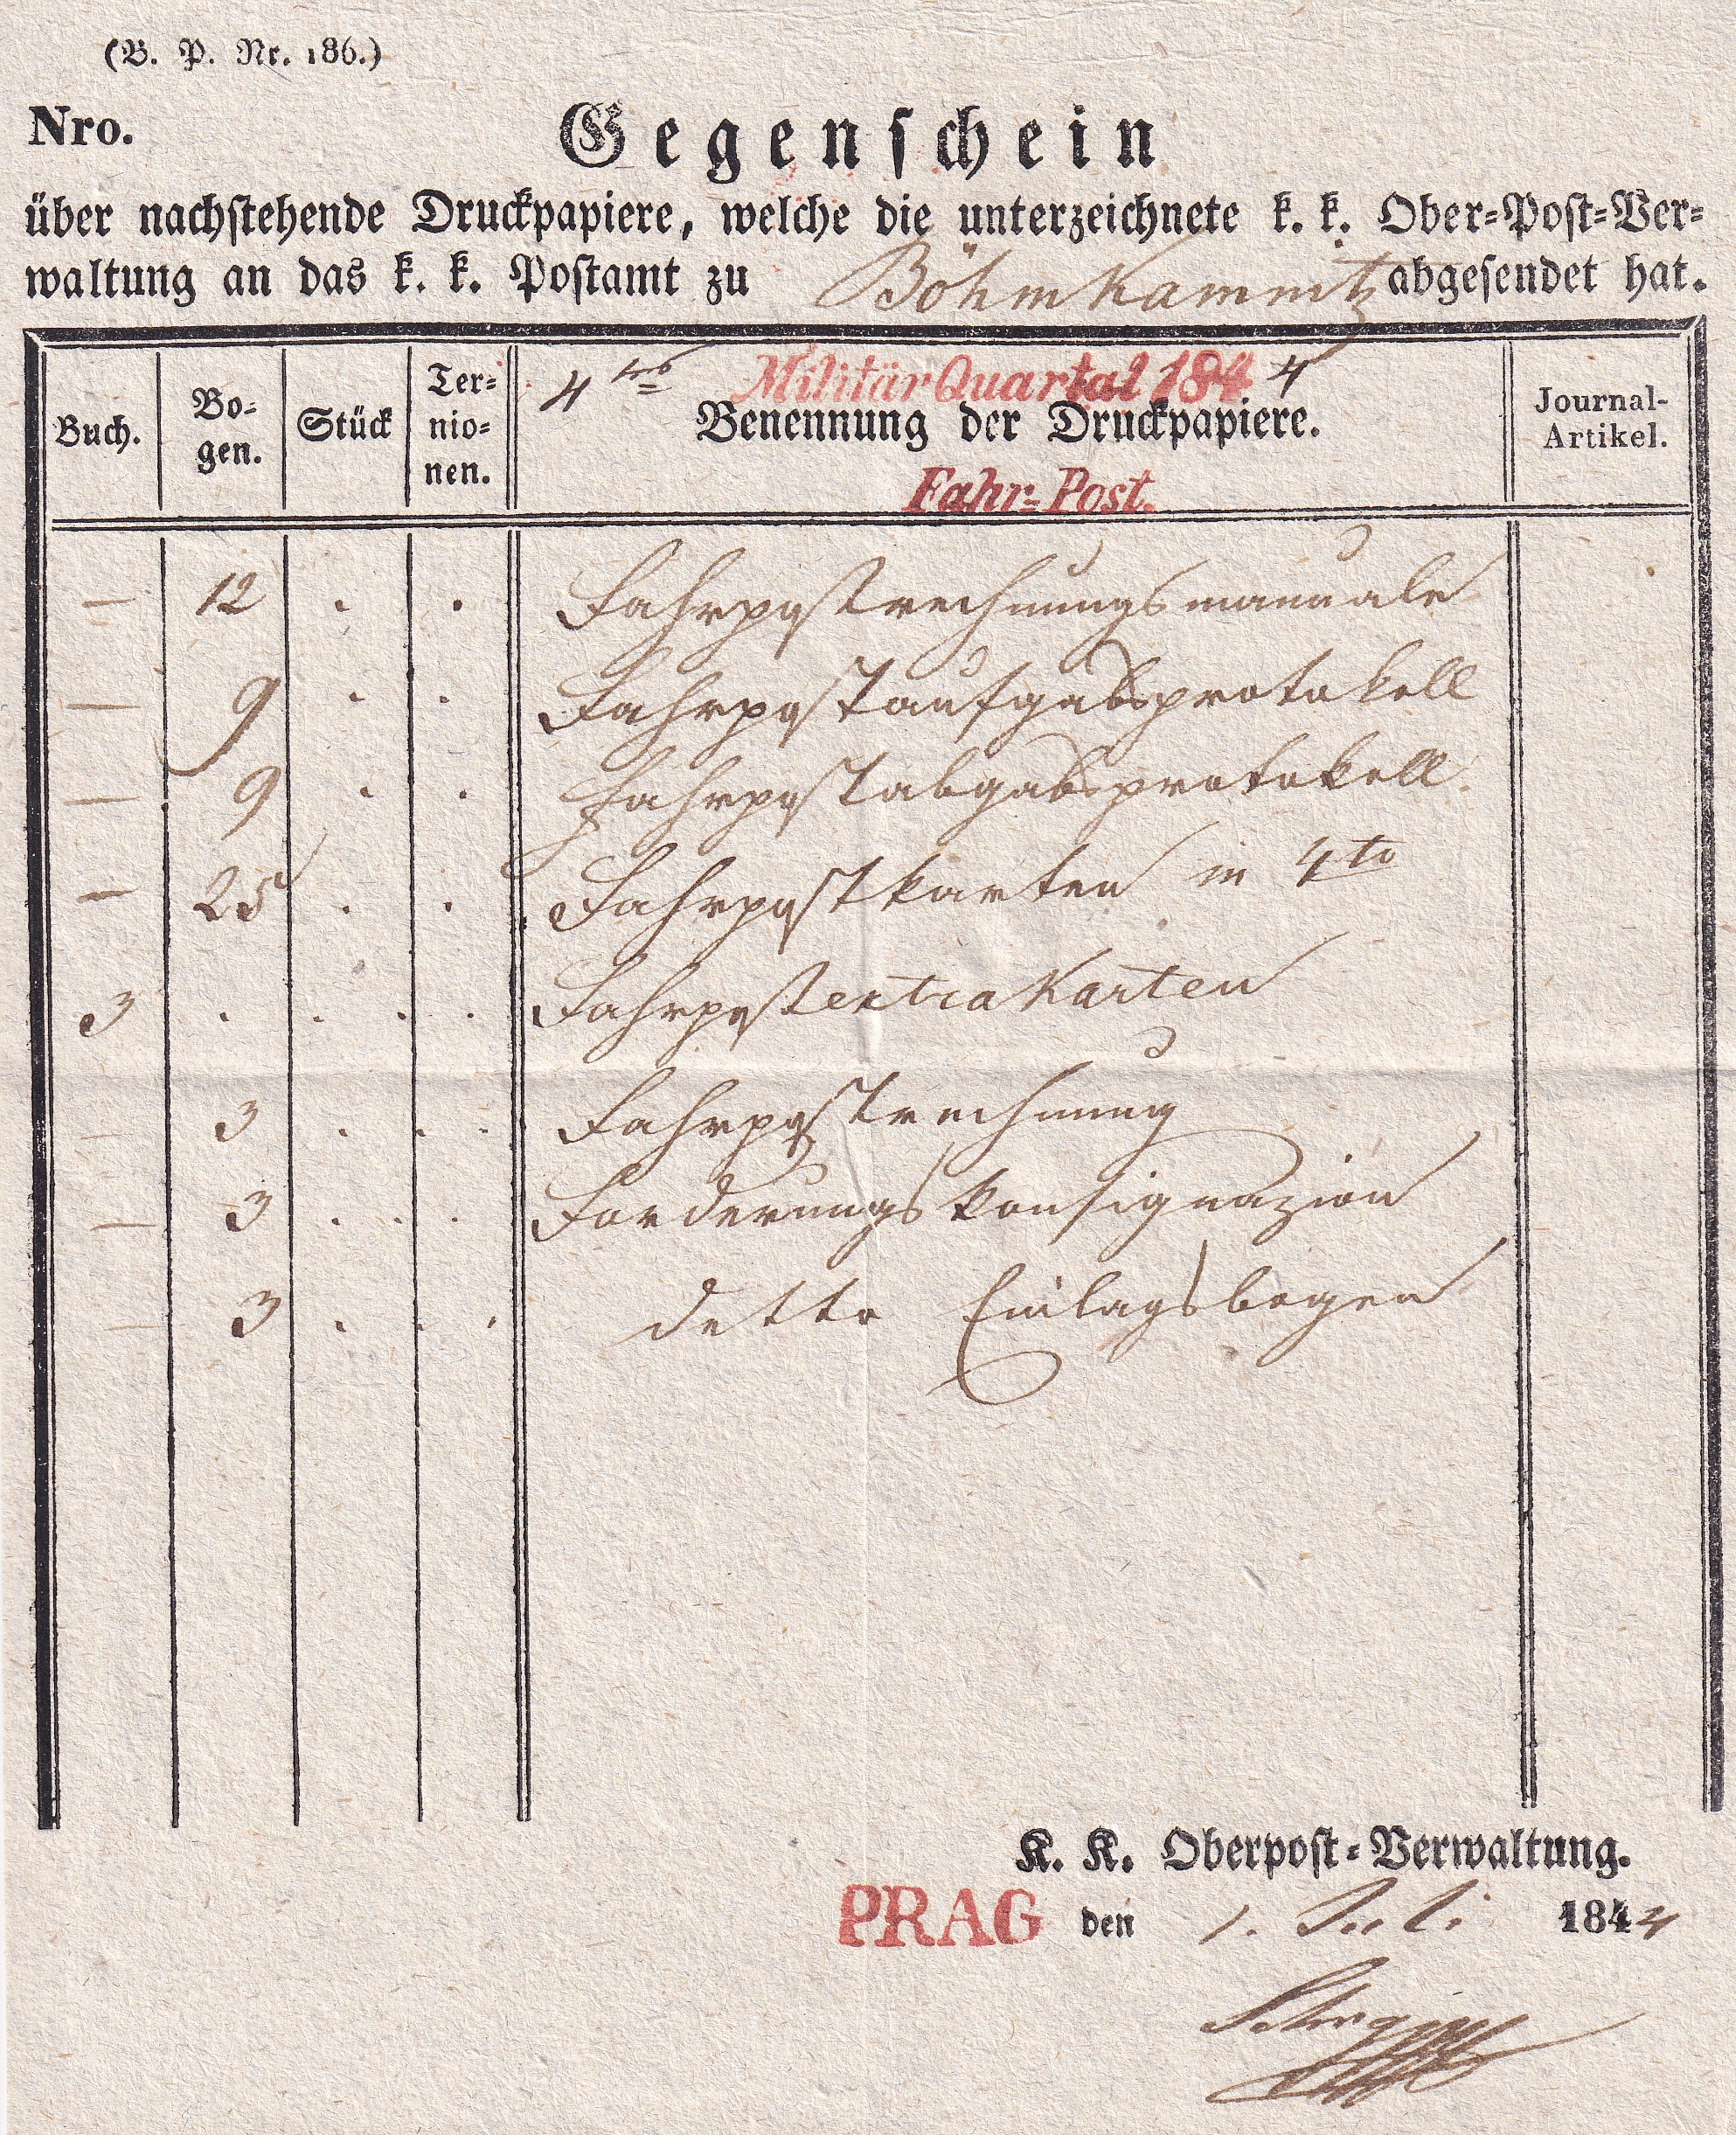 (B. P. Nr. 186.)
Nro. Gegenschein
über nachstehende Druckpapiere, welche die unterzeichnete k. k. Ober-Post-Ver-
waltung an das k. k. Postamt zu Böhm Kamnitz abgesendet hat.
Buch. Bo-gen. Stück Ter-nio-nen. 4tes Militär Quartal 1844 Benennung der Druckpapiere. Fahr-Post. Journal-Artikel.
— 12 . . Fahrpostrechnungsmanuale
— 9 . . Fahrpostaufgabsprotokoll
— 9 . . Fahrpostabgabsprotokoll.
— 25 . . Fahrpostkarten in 4to
3 . . . . Fahrpostextra Karten
— 3 . . . Fahrpostrechnung
— 3 . . . Forderungskonsignazion
— 3 . . . detto Einlagsbogen
K. K. Oberpost-Verwaltung.
PRAG den 1. Juli 1844